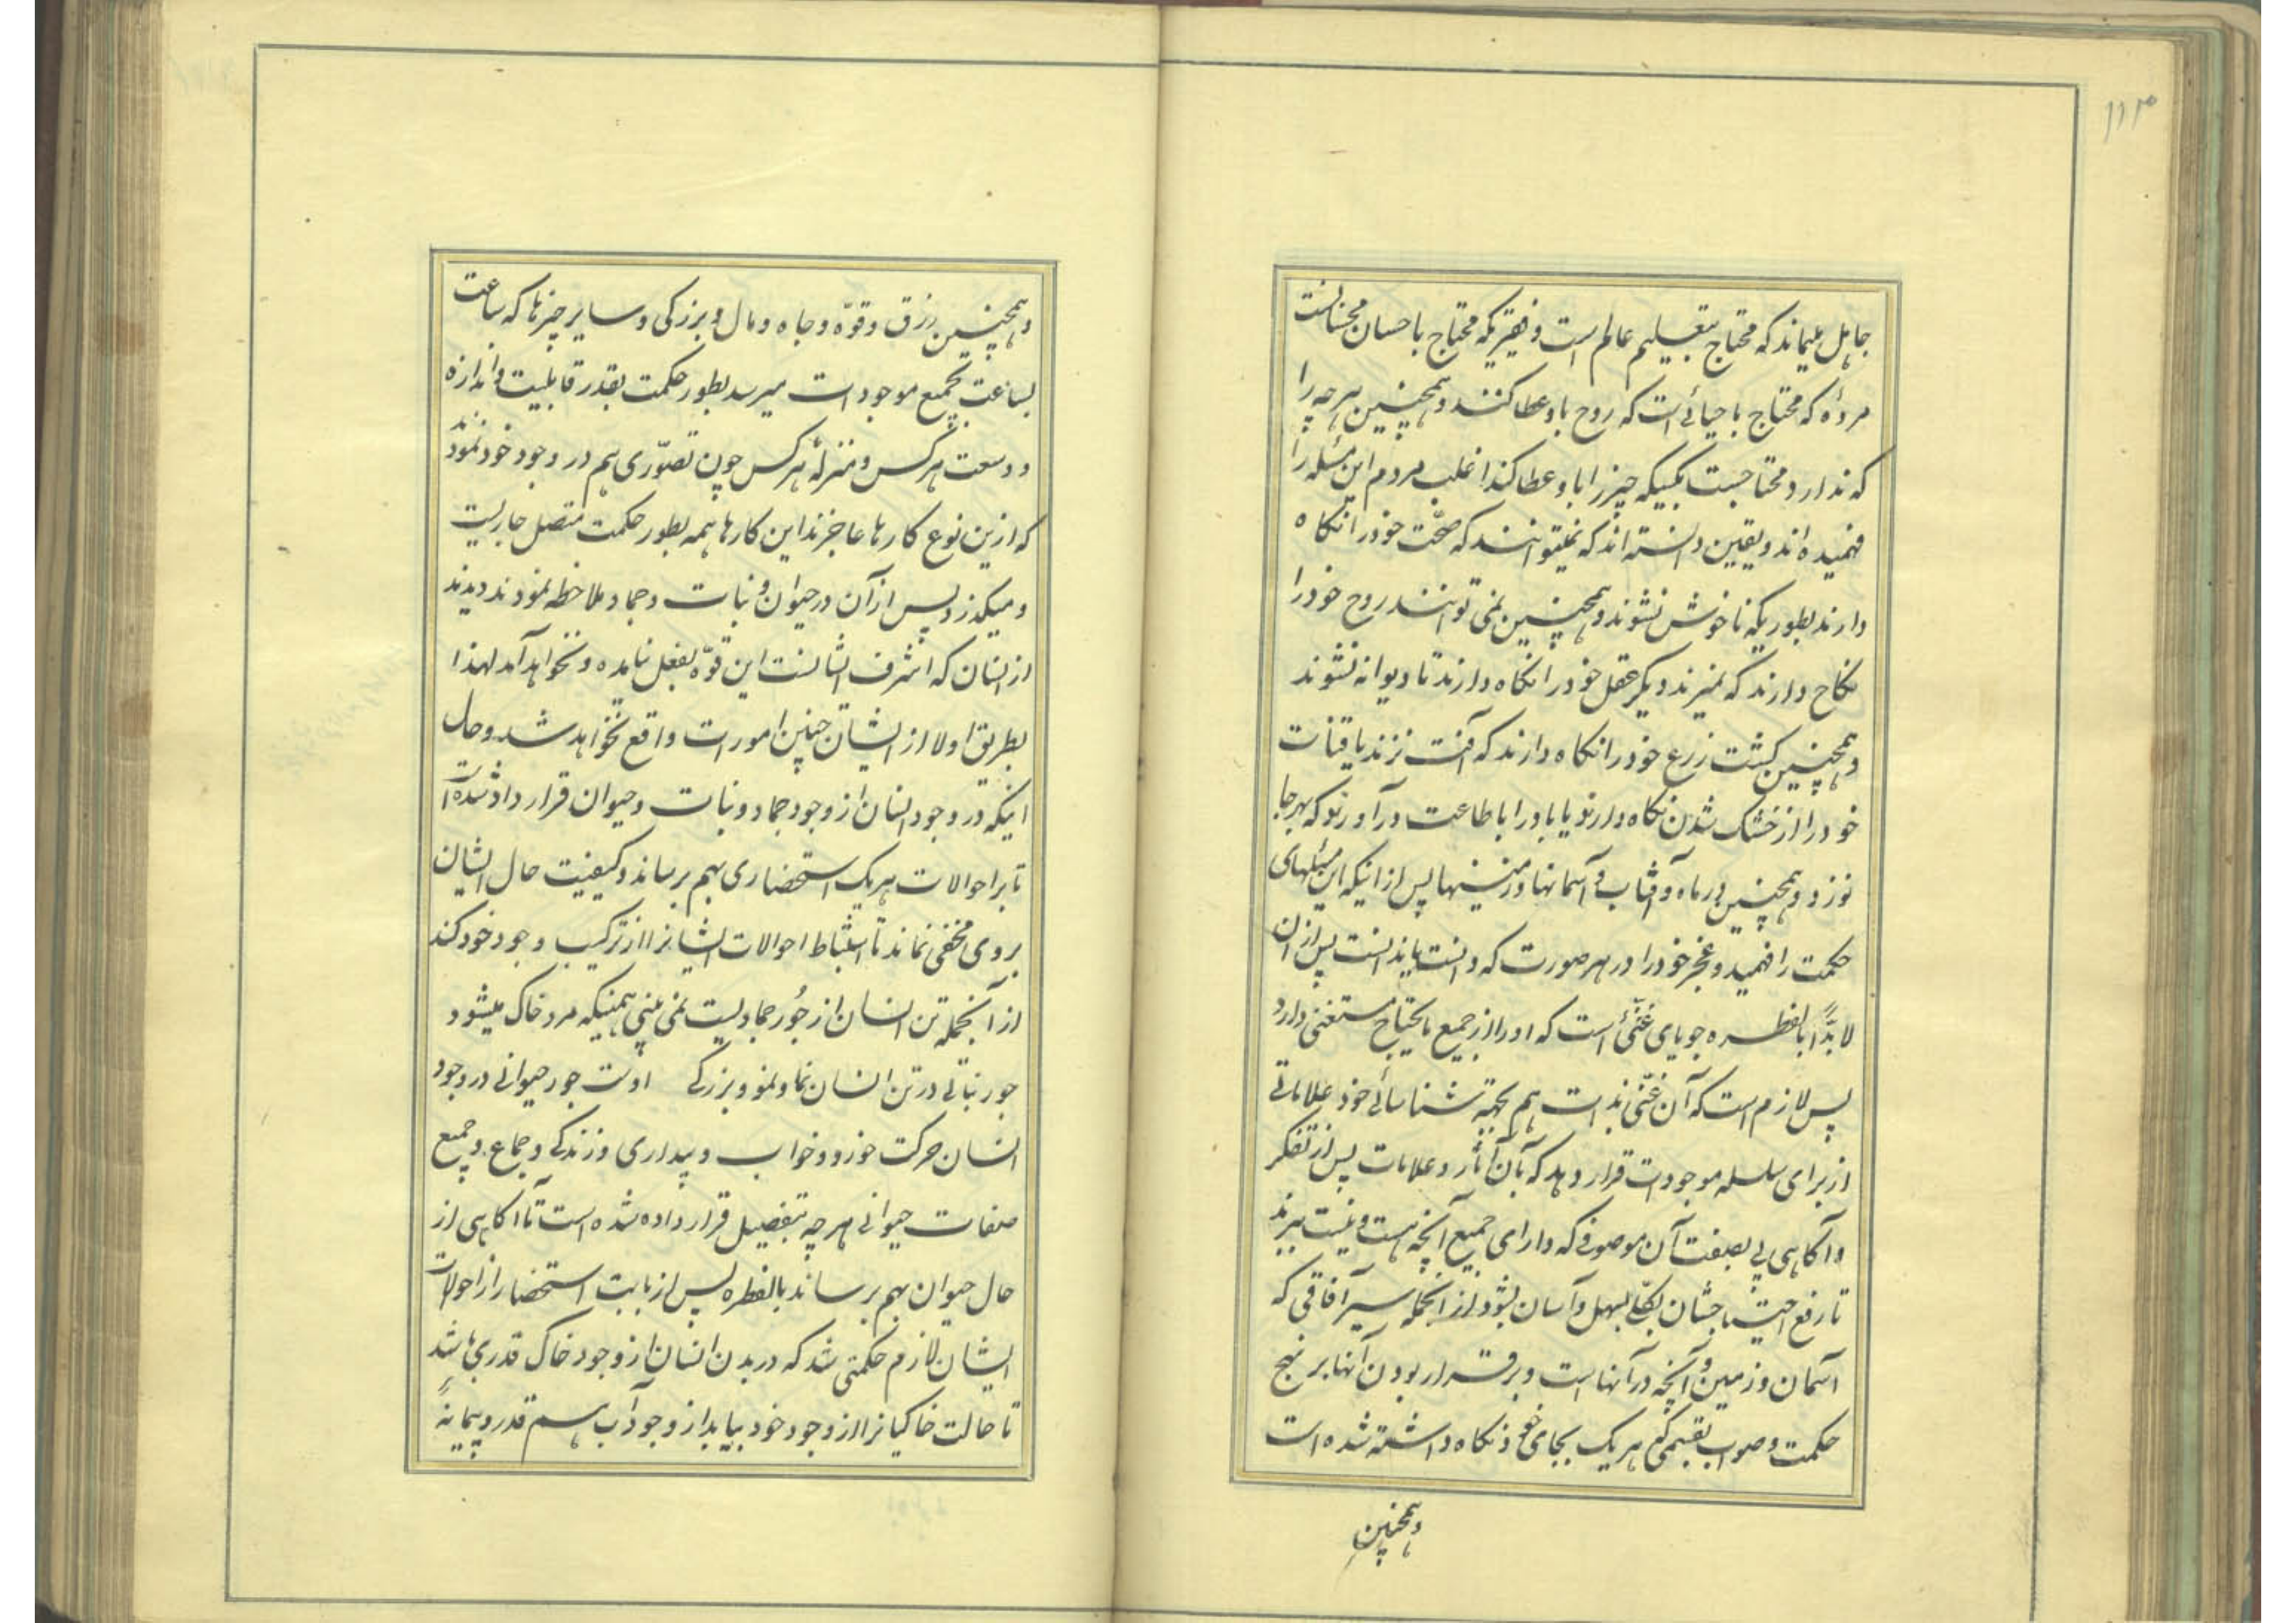 ۱۱۳
جاهل میماند که محتاج بتعلیم عالم است و فقیریکه محتاج باحسان محسنانست
مردهٔ که محتاج باحیائی است که روح باو عطا کنند و همچنین هرچه را
که ندارد محتاجست بکسیکه چیز را باو عطا کند اغلب مردم این مسئله را
فهمیده اند و یقین دانسته اند که نمیتوانند که صحّت خود را نگاه
دارند بطوریکه ناخوش نشوند و همچنین نمی توانند روح خود را
نگاح دارند که نمیرند و دیگر عقل خود را نگاه دارند تا دیوانه نشوند
و همچنین کشت زرع خود را نگاه دارند که آفت نزند یا قنات
خود را از خشک شدن نگاه دارند و یا باد را باطاعت درآورند که بهرجا
نوزد و همچنین در ماه و آفتاب و آسمانها و زمینها پس از اینکه این مسئلهای
حکمت را فهمید و عجز خود را در هر صورت که دانست باید دانست پس از آن
لابدّاً بالفطره جویای غنیّ است که او را از جمیع مایحتاج مستغنی دارد
پس لازم است که آن غنّی بذات هم بجهته شناسائی خود علاماتی
از برای سلسله موجودات قرار دهد که بآن آثار و علامات پس از تفکر
و آگاهی پی بصفت آن موصوفی که دارای جمیع آنچه هست و نیست ببرند
تا رفع احتیاجشان بکلّی بسهل و آسان بشود از آنجمله سیر آفاقی که
آسمان و زمین و آنچه در آنهاست و برقرار بودن آنها بر نهج
حکمت و صواب بقسمی که هریک بجای خود نگاه داشته شده است
و همچنین
و همچنین رزق و قوّه و جاه و مال و بزرگی و سایر چیزها که ساعت
بساعت بجمیع موجودات میرسد بطور حکمت بقدر قابلیت و اندازه
و وسعت هر کس و منزلهٔ هر کس چون تصوّری هم در وجود خود نمود
که ازین نوع کارها عاجزند این کارها همه بطور حکمت متصل جاریست
و میگذرد پس از آن در حیوان و نبات و جماد ملاحظه نمودند دیدند
از انسان که اشرف ایشانست این قوّه بفعل نیامده و نخواهد آمد لهذا
بطریق اولا از ایشان چنین امورات واقع نخواهد شد و حال
اینکه در وجود انسان از وجود جماد و نبات و حیوان قرار داد شده است
تا بر احوالات هریک استحضاری بهم برساند و کیفیت حال ایشان
بروی مخفی نماند تا استنباط احوالات ایشانرا از ترکیب وجود خود کند
از آنجمله تن انسان از جور جمادیست نمی بینی همینکه مرد خاک میشود
جور نباتی در تن انسان نما و نمو و بزرگی اوست جور حیوانی در وجود
انسان حرکت خور و خواب و بیداری و زندگی و جماع و جمیع
صفات حیوانی هرچه بتفصیل قرار داده شده است تا آگاهی از
حال حیوان بهم برساند بالفطره پس از بابت استحضار از احوالات
ایشان لازم حکمتی شد که در بدن انسان از وجود خاک قدری باشد
تا حالت خاکیانرا از وجود خود بیابد از وجود آب هم قدر و پیمانهٔ